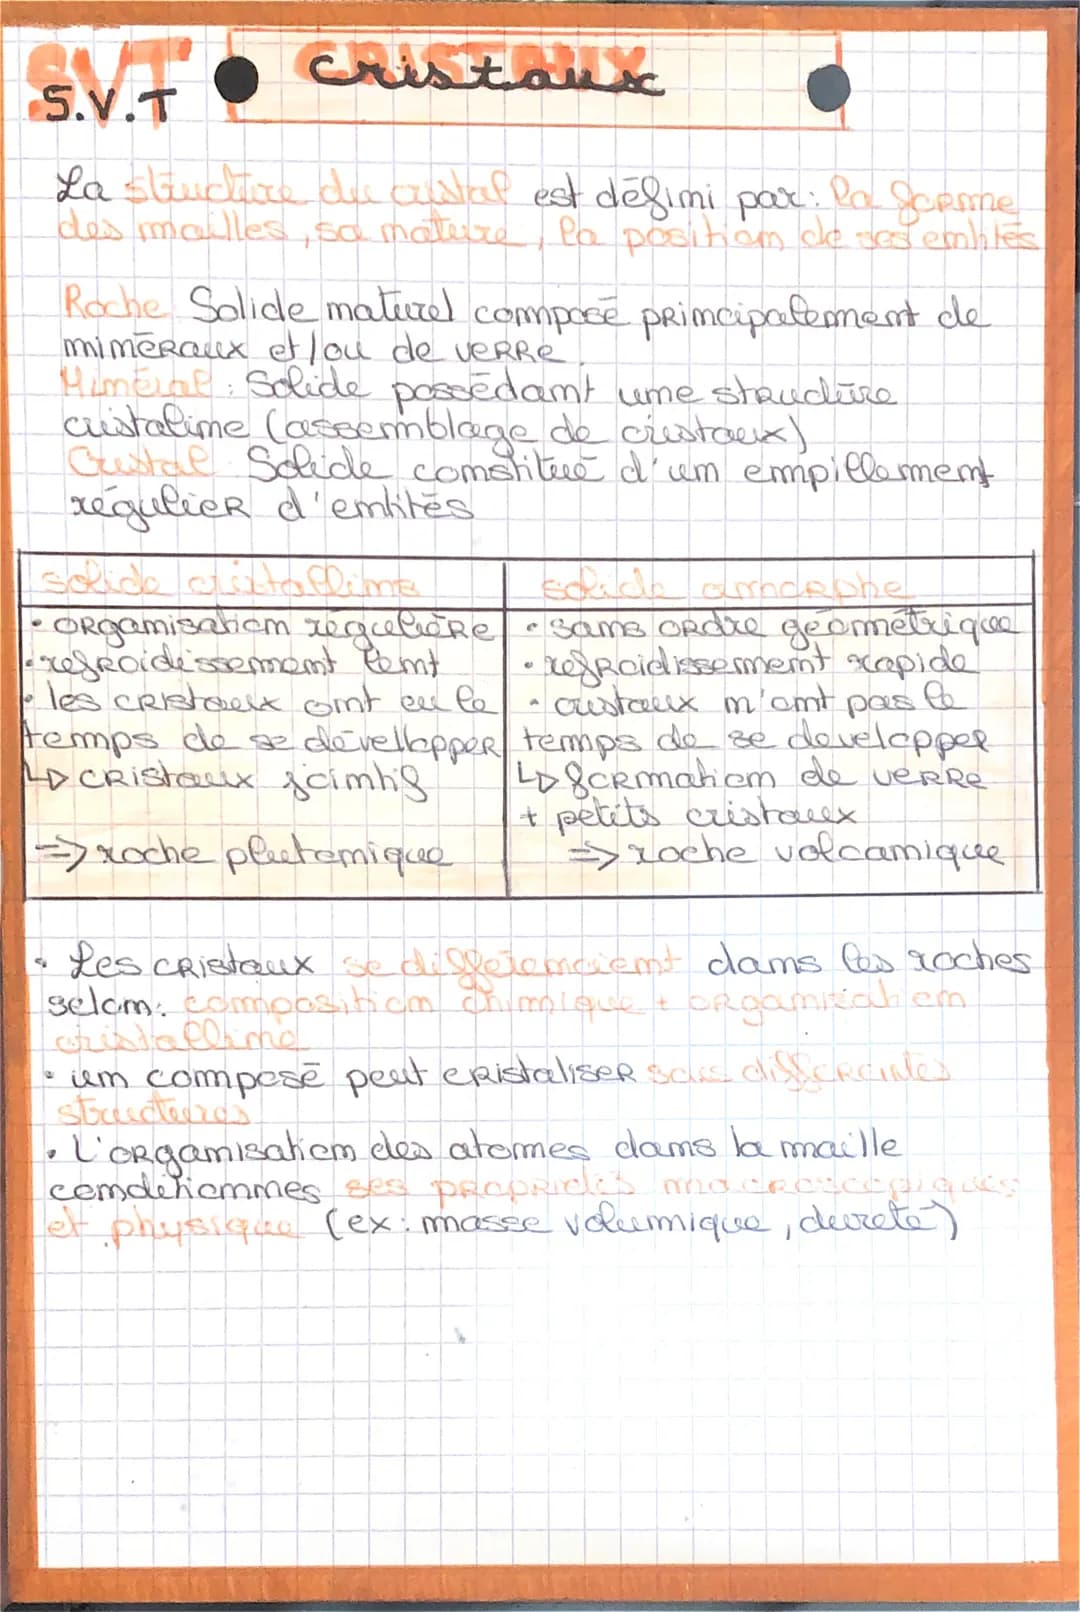 SVT CRISTAUX
S.V.T Cristaux
La structure du cristal est défini par: la forme
des mailles, sa nature, la position de ses entités
Roche Solide naturel composé principalement de
minéraux et/ou de verre.
Minéral: Solide possédant une structure
cristaline (assemblage de cristaux)
Cristal Solide constitué d'un empillement
régulier d'entités
solide cristallins
solide amorphe
• organisation régulière
• refroidissement lent
• les cristaux ont eu le
temps de se dévellopper
↳ cristaux jointif
=> roche plutonique
• sans ordre géométrique
• refroidissement rapide
• cristaux n'ont pas le
temps de se developper
↳ formation de verre
+ petits cristaux
=> roche volcanique
• Les cristaux se différencient dans les roches
selon: composition chimique + organisation
cristalline
• un composé peut cristaliser sous différentes
structures
• L'organisation des atomes dans la maille
conditionnes ses propriétés macroscopiques
et physique (ex: masse volumique, dureté)